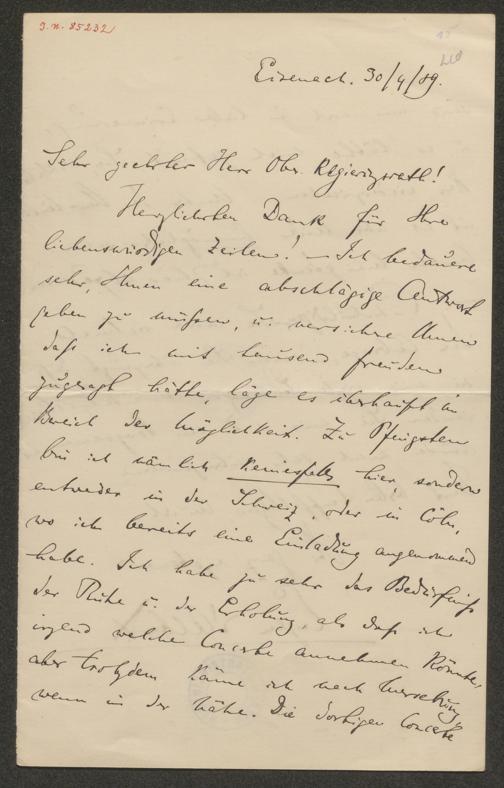 J.N. 85232
Eisenach. 30/4/89.
Sehr geehrter Herr Ober Regierigsrath!
Herzlichsten Dank für Ihre
liebenswürdigen Zeilen! – Ich bedaure
sehr, Ihnen eine abschlägige Antwort
geben zu müssen, u. versichere Ihnen
daß ich mit tausend Freuden
zugesagt hätte, läge es überhaupt im
Bereich der Möglichkeit. Zu Pfingsten
bin ich nämlich keinesfalls hier sondern
entweder in der Schweiz, oder in Cöln,
wo ich bereits eine Einladung angenommen
habe. Ich habe zu sehr das Bedürfniß
der Ruhe u. der Erholung, als daß ich
irgend welche Concerte annehmen könnte,
aber trotzdem käme ich nach Merseburg,
wenn in der Nähe. Die dortigen Concerte